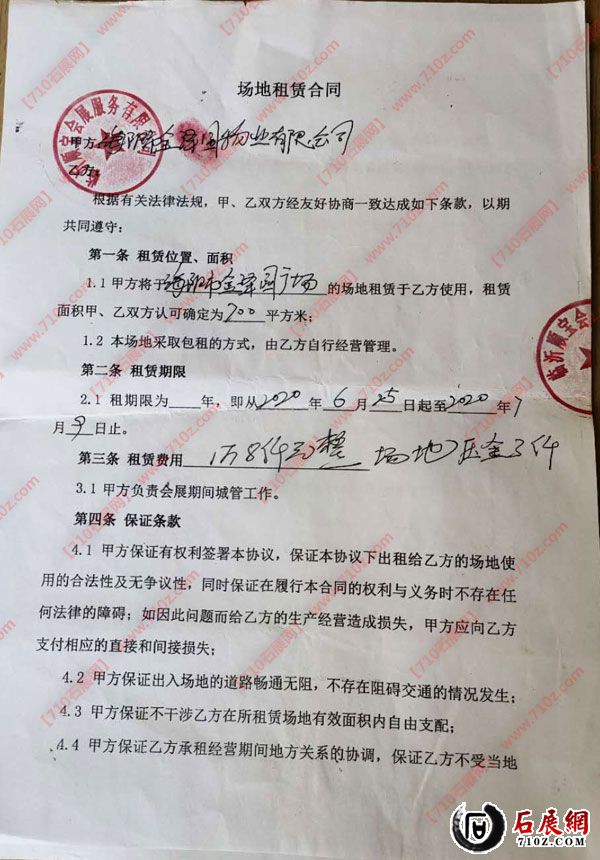 场地租赁合同
甲方:
物业有限公司
乙方:
根据有关法律法规，甲、乙双方经友好协商一致达成如下条款，以期
共同遵守:
第一条 租赁位置、面积
1.1 甲方将于 广场 的场地租赁于乙方使用，租赁
面积甲、乙双方认可确定为 700 平方米;
1.2 本场地采取包租的方式，由乙方自行经营管理。
第二条 租赁期限
2.1 租期限为 年，即从 2020 年 6 月 25 日起至 2020 年 7
月 9 日止。
第三条 租赁费用 1万8仟 整 场地压金3仟
3.1 甲方负责会展期间城管工作。
第四条 保证条款
4.1 甲方保证有权利签署本协议，保证本协议下出租给乙方的场地使
用的合法性及无争议性，同时保证在履行本合同的权利与义务时不存在任
何法律的障碍；如因此问题而给乙方的生产经营造成损失，甲方应向乙方
支付相应的直接和间接损失；
4.2 甲方保证出入场地的道路畅通无阻，不存在阻碍交通的情况发生；
4.3 甲方保证不干涉乙方在所租赁场地有效面积内自由支配；
4.4 甲方保证乙方承租经营期间地方关系的协调，保证乙方不受当地
临沂顺宝会展服务有限
临沂顺宝会
【710石展网】
www.710z.com
石展網
710Z.COM